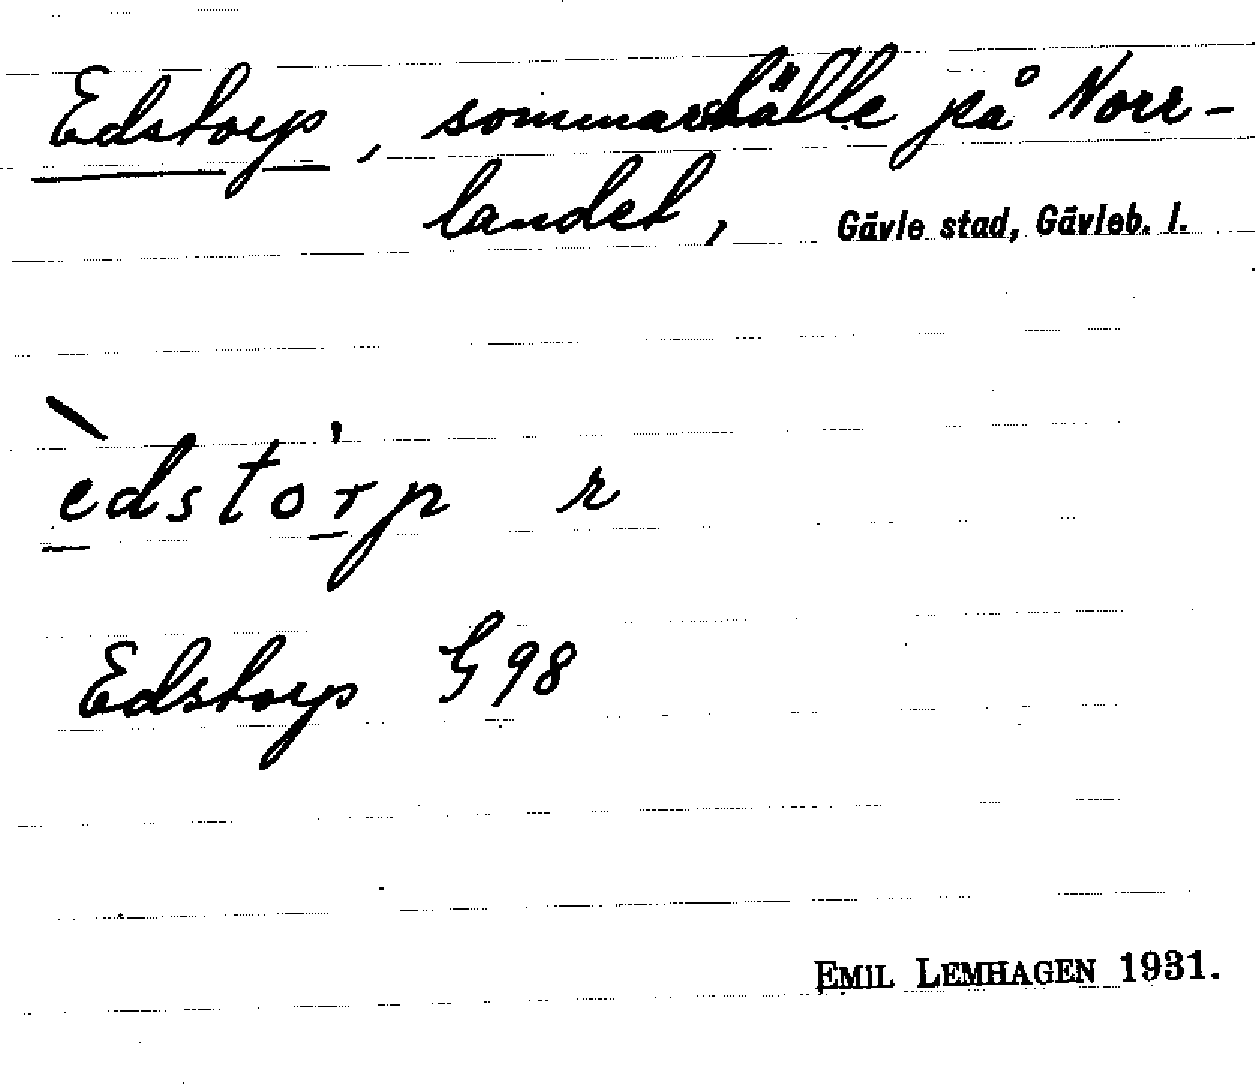 Edstorp, sommarställe på Norr-
landet, Gävle stad, Gävleb. l.
èdstórp r
Edstorp G 98
EMIL LEMHAGEN 1931.